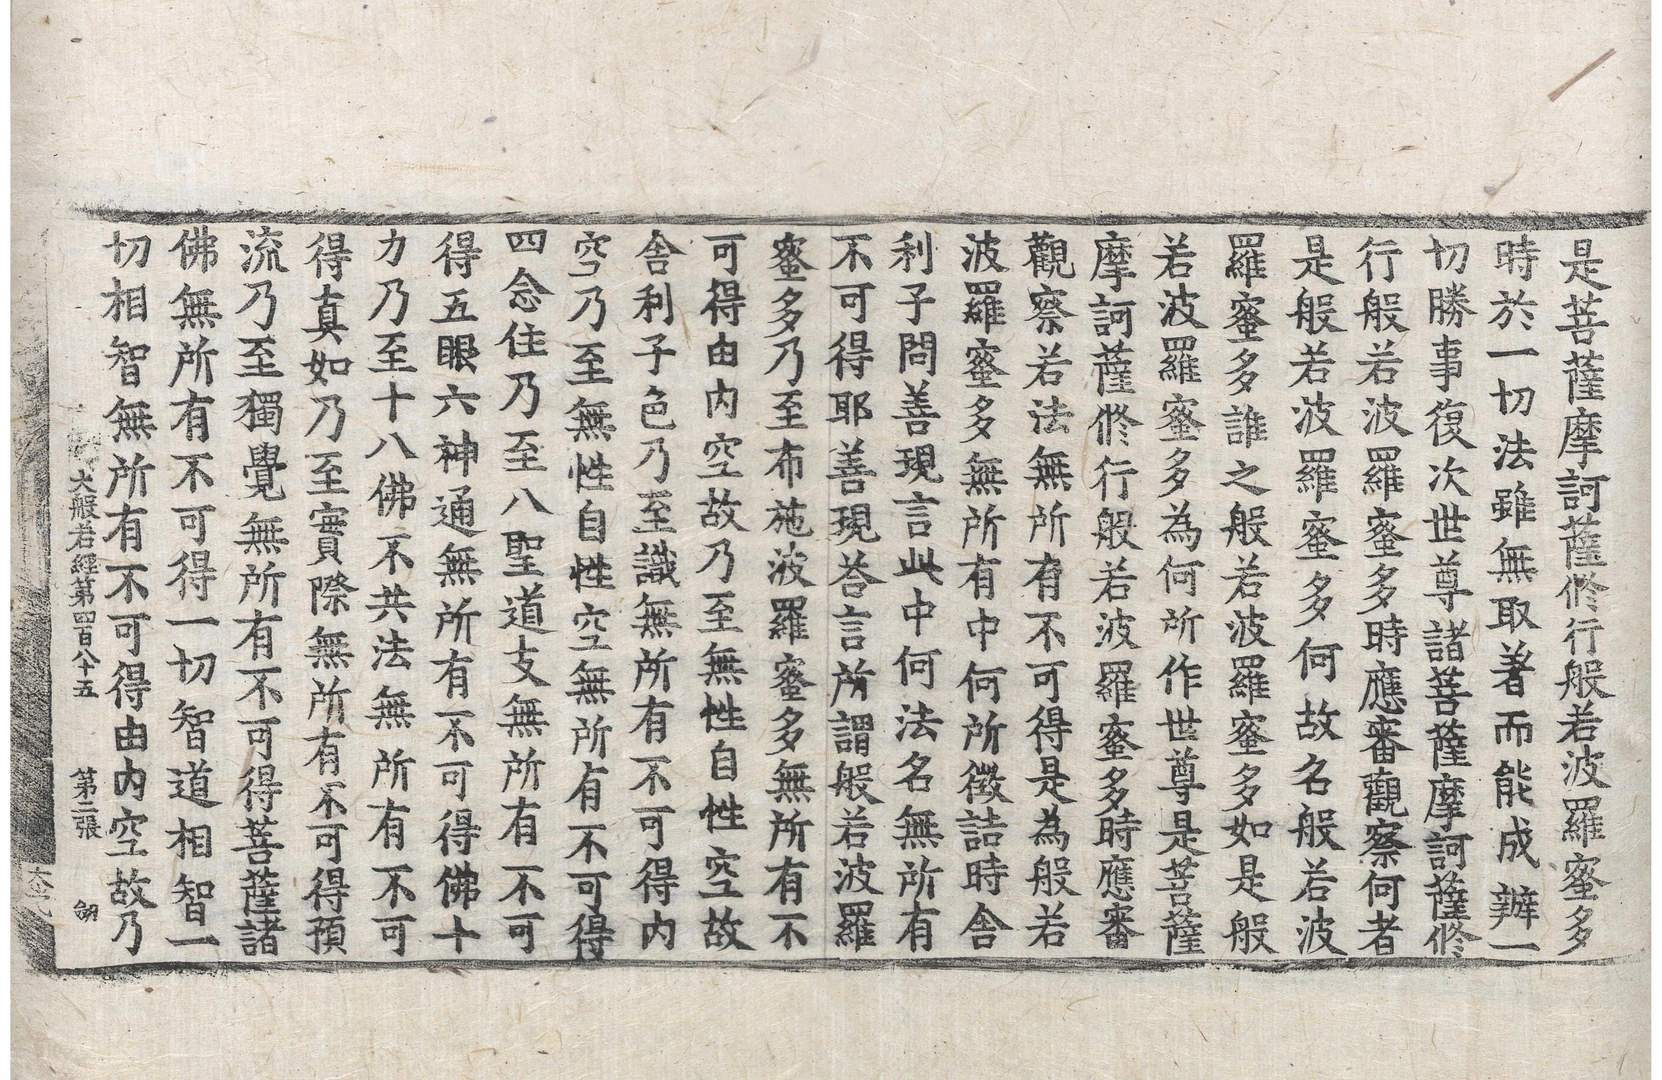 是菩薩摩訶薩修行般若波羅蜜多
時於一切法雖無取著而能成辦一
切勝事復次世尊諸菩薩摩訶薩修
行般若波羅蜜多時應審觀察何者
是般若波羅蜜多何故名般若波
羅蜜多誰之般若波羅蜜多如是般
若波羅蜜多為何所作世尊是菩薩
摩訶薩修行般若波羅蜜多時應審
觀察若法無所有不可得是為般若
波羅蜜多無所有中何所徵詰時舍
利子問善現言此中何法名無所有
不可得耶善現荅言所謂般若波羅
蜜多乃至布施波羅蜜多無所有不
可得由內空故乃至無性自性空故
舍利子色乃至識無所有不可得內
空乃至無性自性空無所有不可得
四念住乃至八聖道支無所有不可
得五眼六神通無所有不可得佛十
力乃至十八佛不共法無所有不可
得真如乃至實際無所有不可得預
流乃至獨覺無所有不可得菩薩諸
佛無所有不可得一切智道相智一
切相智無所有不可得由內空故乃
大般若經第四百八十五 第二張